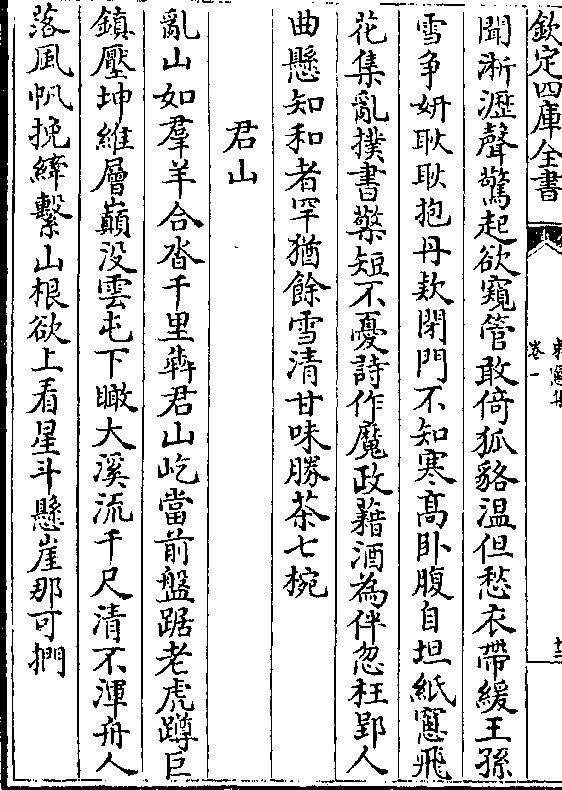 欽定四庫全書
卷一
聞淅瀝聲驚起欲窺管敢倚狐貉溫但愁衣帶緩王孫
雪争妍耿耿抱丹欵閉門不知寒髙卧腹自坦紙窻飛
花集亂撲書檠短不憂詩作魔政藉酒為伴忽枉郢人
曲懸知和者罕猶餘雪清甘味勝茶七椀
君山
亂山如羣羊合沓千里犇君山屹當前盤踞老虎蹲巨
鎮壓坤維層巔没雲屯下瞰大溪流千尺清不渾舟人
落風帆挽縴繫山根欲上看星斗懸崖那可捫